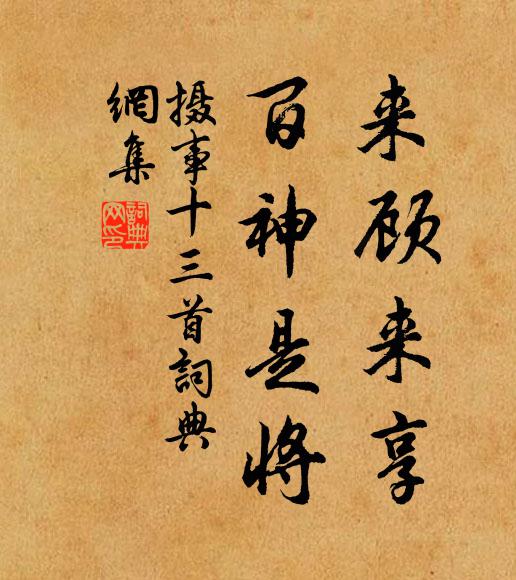 来顾来享
百神是将
摄事十三首詞典
網集
詞典
网印